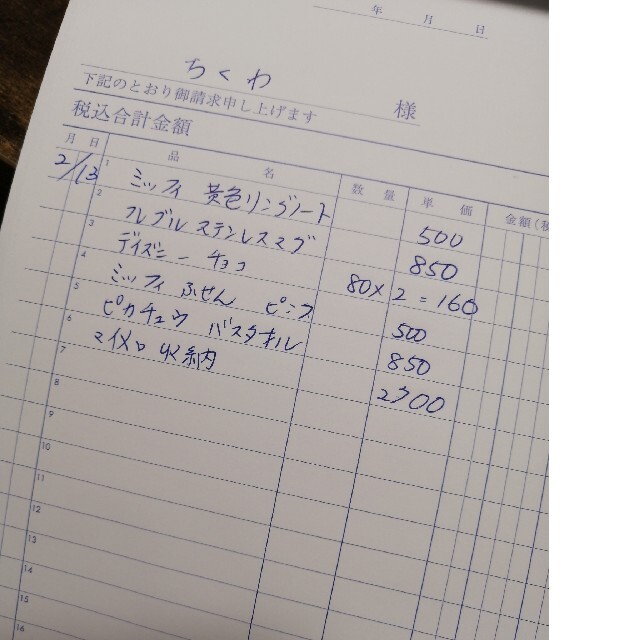 年 月 日
ちくわ 様
下記のとおり御請求申し上げます
税込合計金額
月 日 品 名 数 量 単 価 金額(税
2/13 1 ミッフィ 黄色リングノート 500
2 フレブル ステンレスマグ 850
3 ディズニー チョコ 80×2=160
4 ミッフィ ふせん ピンク 500
5 ピカチュウ バスタオル 850
6 マイメロ 収納 2700
7
8
9
10
11
12
13
14
15
16